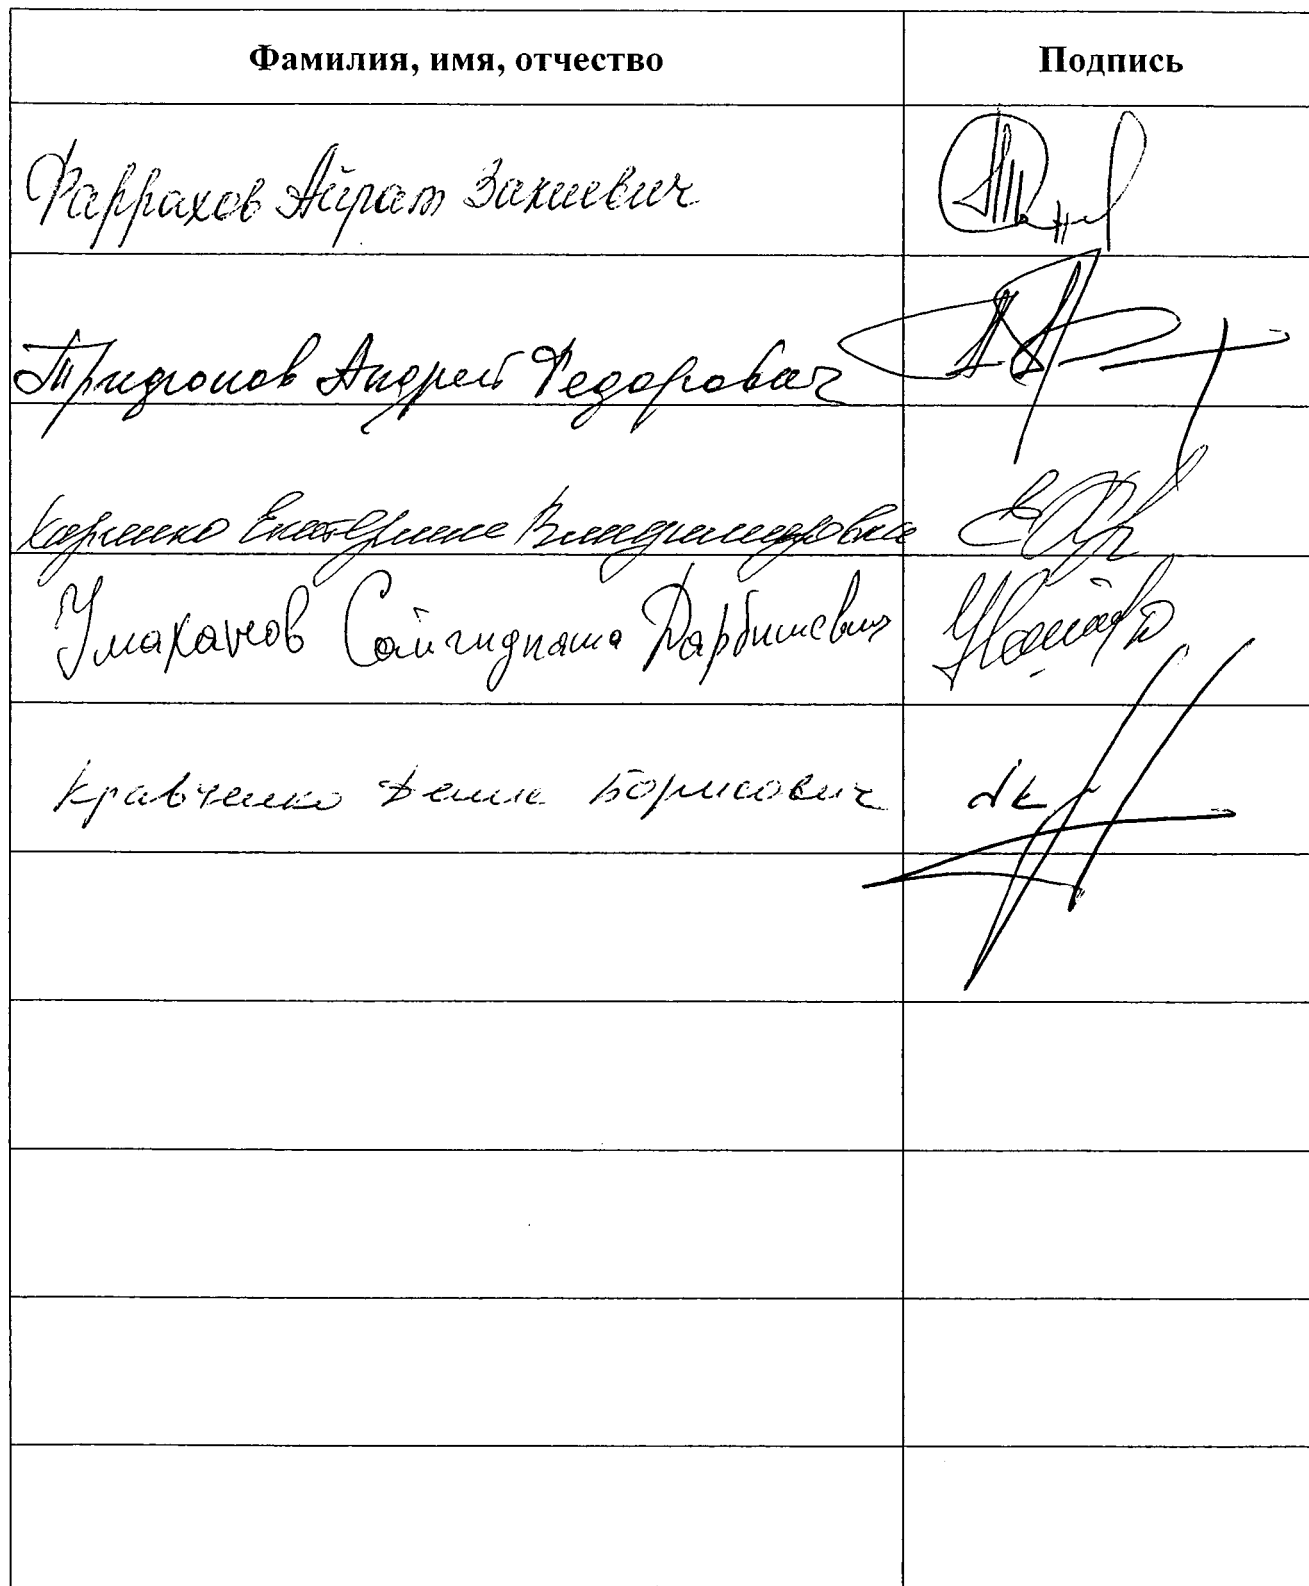 Фамилия, имя, отчество Подпись
Фаррахов Айрат Закиевич
Трифонов Андрей Федорович
Харченко Екатерина Владимировна
Умаханов Сайгидпаша Дарбишевич
Кравченко Денис Борисович